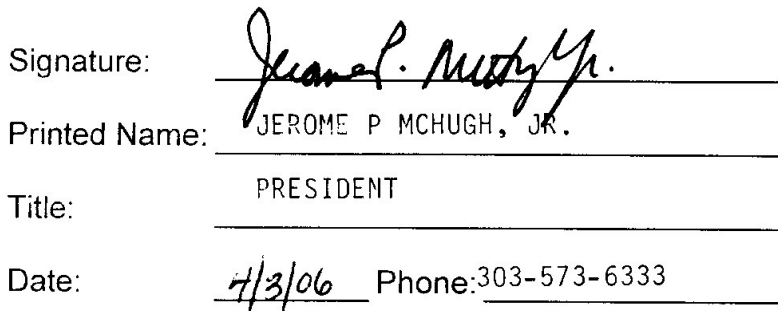 Signature: Jerome P. McHugh Jr.
Printed Name: JEROME P MCHUGH, JR.
Title: PRESIDENT
Date: 4/3/06 Phone: 303-573-6333